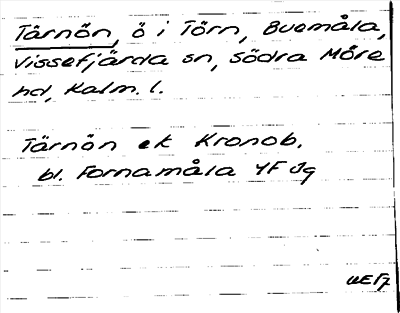 Tärnön, ö i Törn, Buemåla,
Vissefjärda sn, Södra Möre
hd, Kalm. l.
Tärnön ek Kronob.
bl. Fornamåla YF Jg